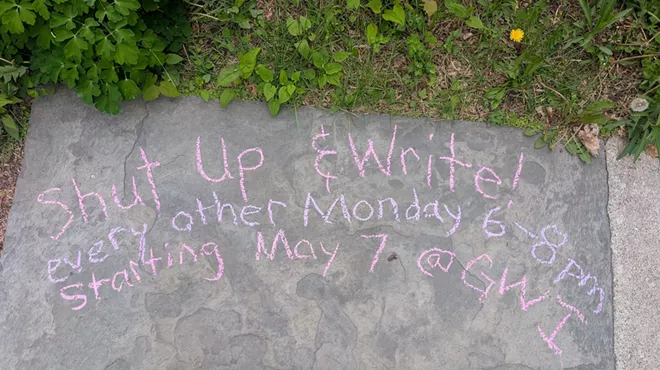 Shut Up & Write!
every other Monday 6-8 pm
starting May 7 @ GWI